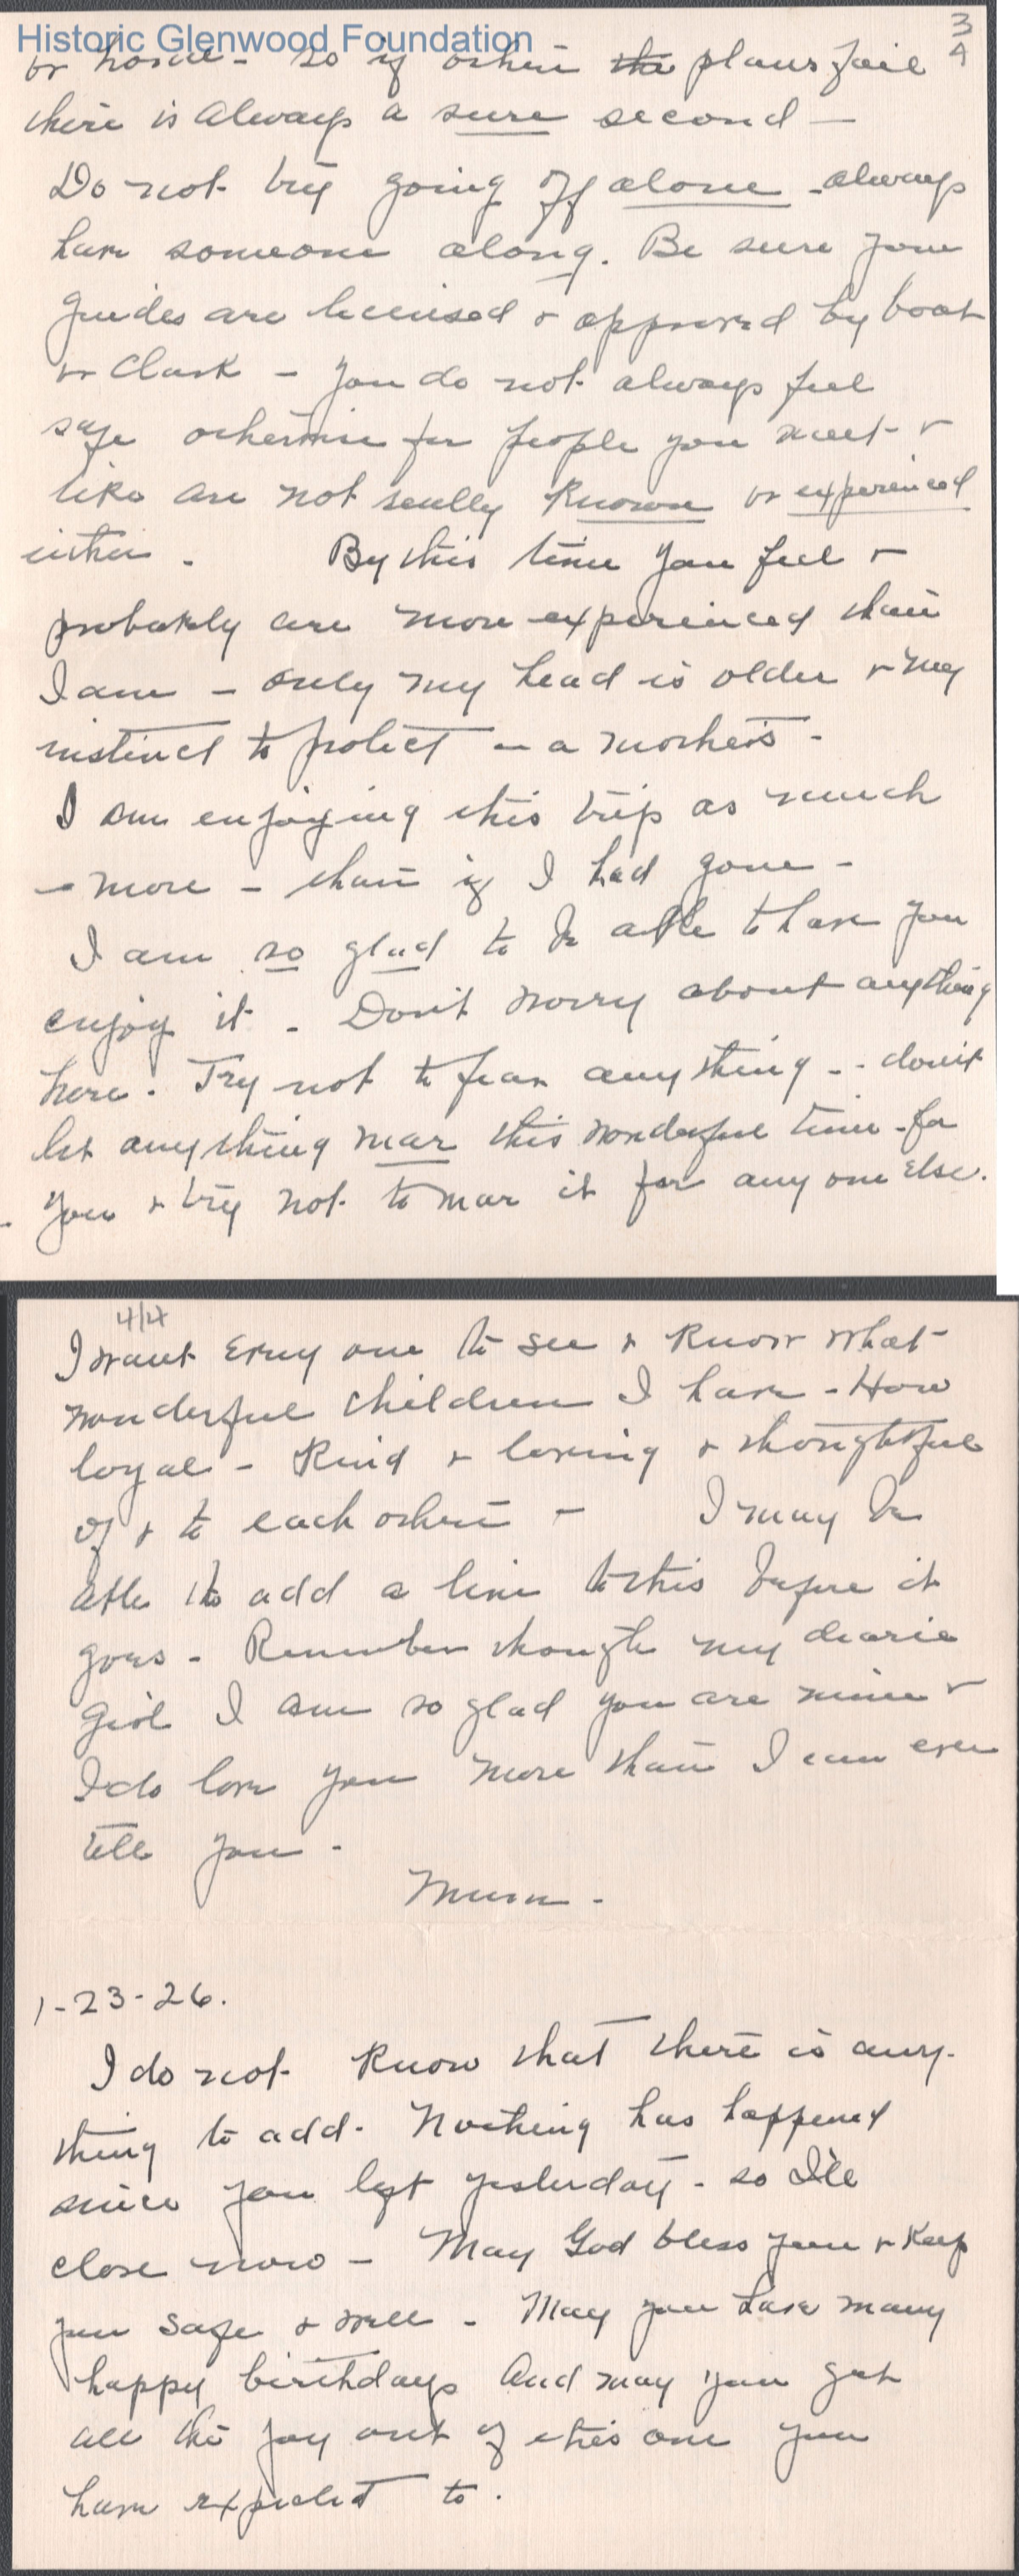 Historic Glenwood Foundation
3
4
or home - so if other the plans fail
there is always a sure second -
Do not try going off alone - always
have someone along. Be sure your
guides are licensed & approved by boat
or Clark - you do not always feel
safe otherwise for people you meet &
like are not really known or experienced
either. By this time you feel &
probably are more experienced than
I am - only my head is older & my
instinct to protect - a mother's -
I am enjoying this trip as much
- more - than if I had gone -
I am so glad to be able to have you
enjoy it - Don't worry about anything
here. Try not to fear anything - - don't
let anything mar this wonderful time - for
you & try not to mar it for any one else.
4/4
I want every one to see & know what
wonderful children I have - How
loyal - kind & loving & thoughtful
of & to each other - I may be
able to add a line to this before it
goes - Remember though my dearie
girl I am so glad you are mine &
I do love you more than I can ever
tell you -
Mum -
1-23-26.
I do not know that there is any-
thing to add. Nothing has happened
since you left yesterday - so I'll
close now - May God bless you & keep
you safe & well - May you have many
happy birthdays and may you get
all the joy out of this one you
have expected to.